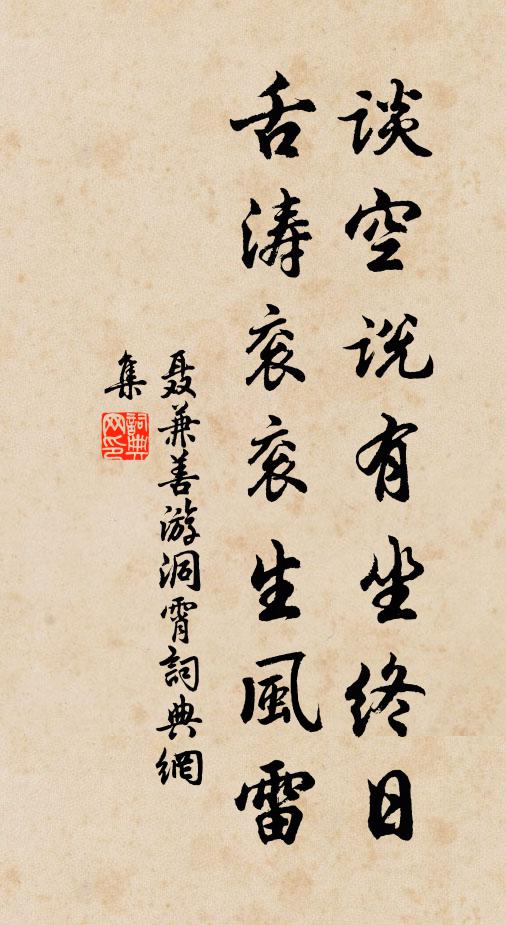 谈空说有坐终日
舌涛衮衮生風雷
聂兼善游洞霄詞典網
集
詞典网印